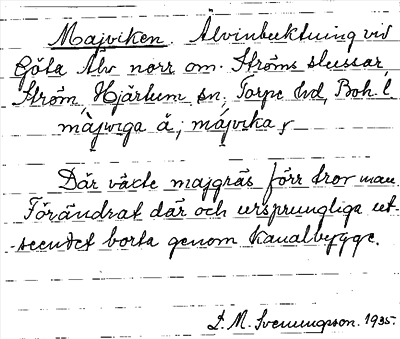 Majviken. Älvinbuktning vid
Göta Älv norr om. Ströms slussar,
Ström, Hjärtum sn, Torpe hd, Boh. l.
màjwiga å; májvika,
Där växte majgräs förr tror man.
Förändrat där och ursprungliga ut-
-seendet borta genom kanalbygge.
L. M. Svenungsson. 1935.